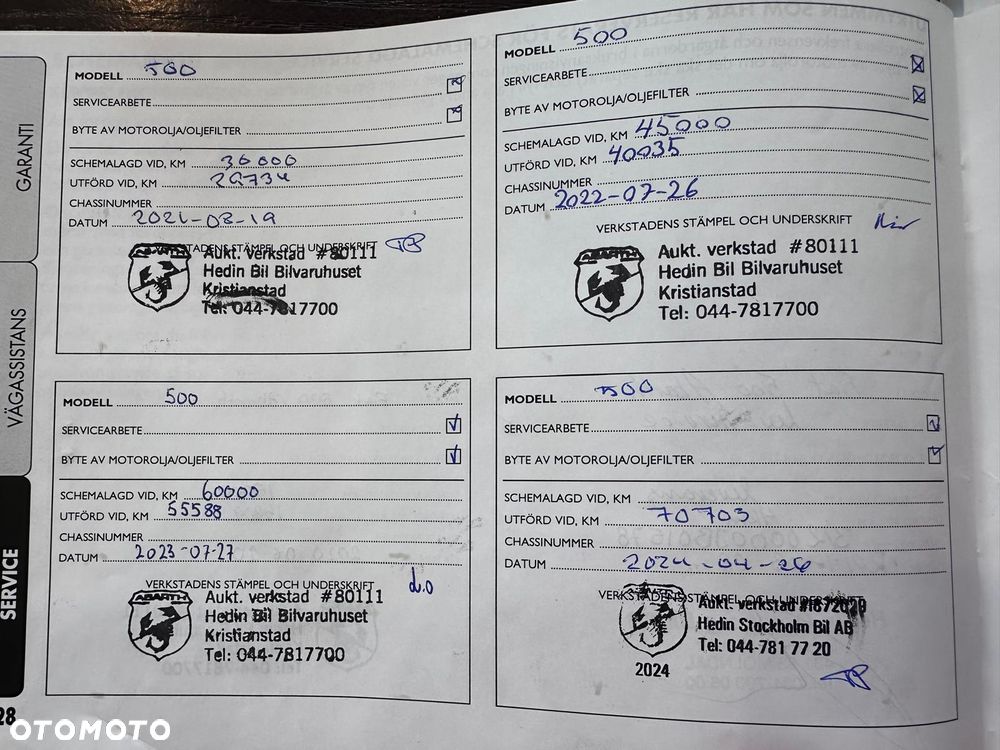 GARANTI
VÄGASSISTANS
SERVICE
28
MODELL 500
SERVICEARBETE
BYTE AV MOTOROLJA/OLJEFILTER
SCHEMALAGD VID, KM 30000
UTFÖRD VID, KM 29734
CHASSINUMMER
DATUM 2021-08-19
VERKSTADENS STÄMPEL OCH UNDERSKRIFT
ABARTH
Aukt. verkstad #80111
Hedin Bil Bilvaruhuset
Kristianstad
Tel: 044-7817700
MODELL 500
SERVICEARBETE
BYTE AV MOTOROLJA/OLJEFILTER
SCHEMALAGD VID, KM 45000
UTFÖRD VID, KM 40035
CHASSINUMMER
DATUM 2022-07-26
VERKSTADENS STÄMPEL OCH UNDERSKRIFT
ABARTH
Aukt. verkstad #80111
Hedin Bil Bilvaruhuset
Kristianstad
Tel: 044-7817700
MODELL 500
SERVICEARBETE
BYTE AV MOTOROLJA/OLJEFILTER
SCHEMALAGD VID, KM 60000
UTFÖRD VID, KM 55588
CHASSINUMMER
DATUM 2023-07-27
VERKSTADENS STÄMPEL OCH UNDERSKRIFT
ABARTH
Aukt. verkstad #80111
Hedin Bil Bilvaruhuset
Kristianstad
Tel: 044-7817700
MODELL 500
SERVICEARBETE
BYTE AV MOTOROLJA/OLJEFILTER
SCHEMALAGD VID, KM
UTFÖRD VID, KM 70703
CHASSINUMMER
DATUM 2024-04-26
VERKSTADENS STÄMPEL OCH UNDERSKRIFT
Aukt. verkstad
Hedin Stockholm Bil AB
Tel: 044-781 77 20
2024
OTOMOTO